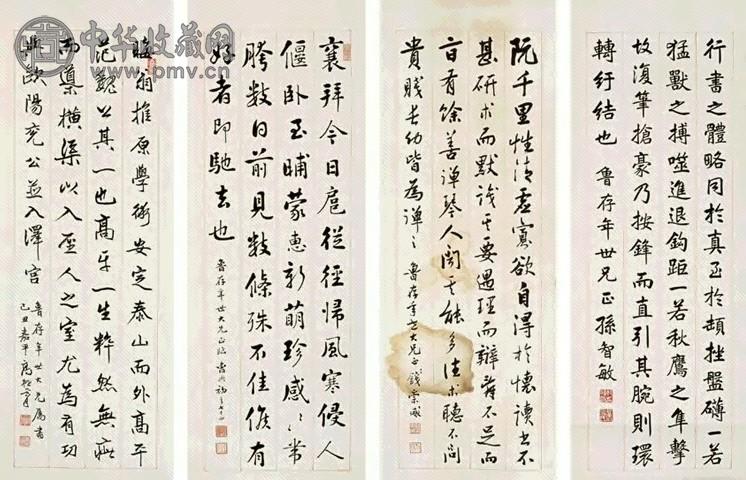 中华收藏网
www.pmv.cn
行書之體略同於真至於頓挫盤礴一若
猛獸之搏噬進退鉤距一若秋鷹之隼擊
故復筆搶豪乃按鋒而直引其腕則環
轉紆結也 魯存年世兄正 孫智敏
阮千里性清虛寡欲自得於懷讀書不
甚研求而默識其要遇理而辯辭不足而
旨有餘善彈琴人聞其能多往求聽不問
貴賤長幼皆為彈之 魯存年世大兄正 錢崇威
襄拜今日扈從徑歸風寒侵人
偃卧至晡蒙惠新萌珍感〻常
胯數日前見數條殊不佳候有
好者即馳去也
魯存年世大兄正臨
晦翁推原學術安定泰山而外高平
范魏公其一也高平一生粹然無疵
而導橫渠以入聖人之室尤為有功
與歐陽兗公並入澤宮
魯存年世大兄屬書
己丑嘉平高振霄